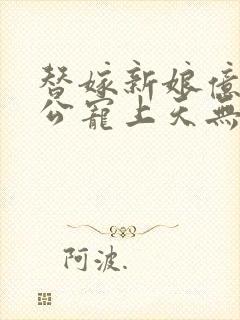 替嫁新娘億
公寵上天無
阿波.